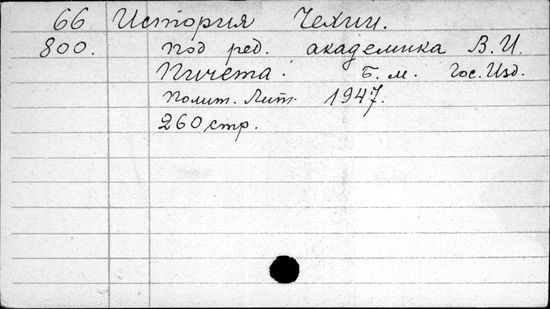 66 История Чехии.
800. Под ред. академика В. И.
Пичета. Б. м. Гос. Изд.
Полит. Лит. 1947.
260 стр.